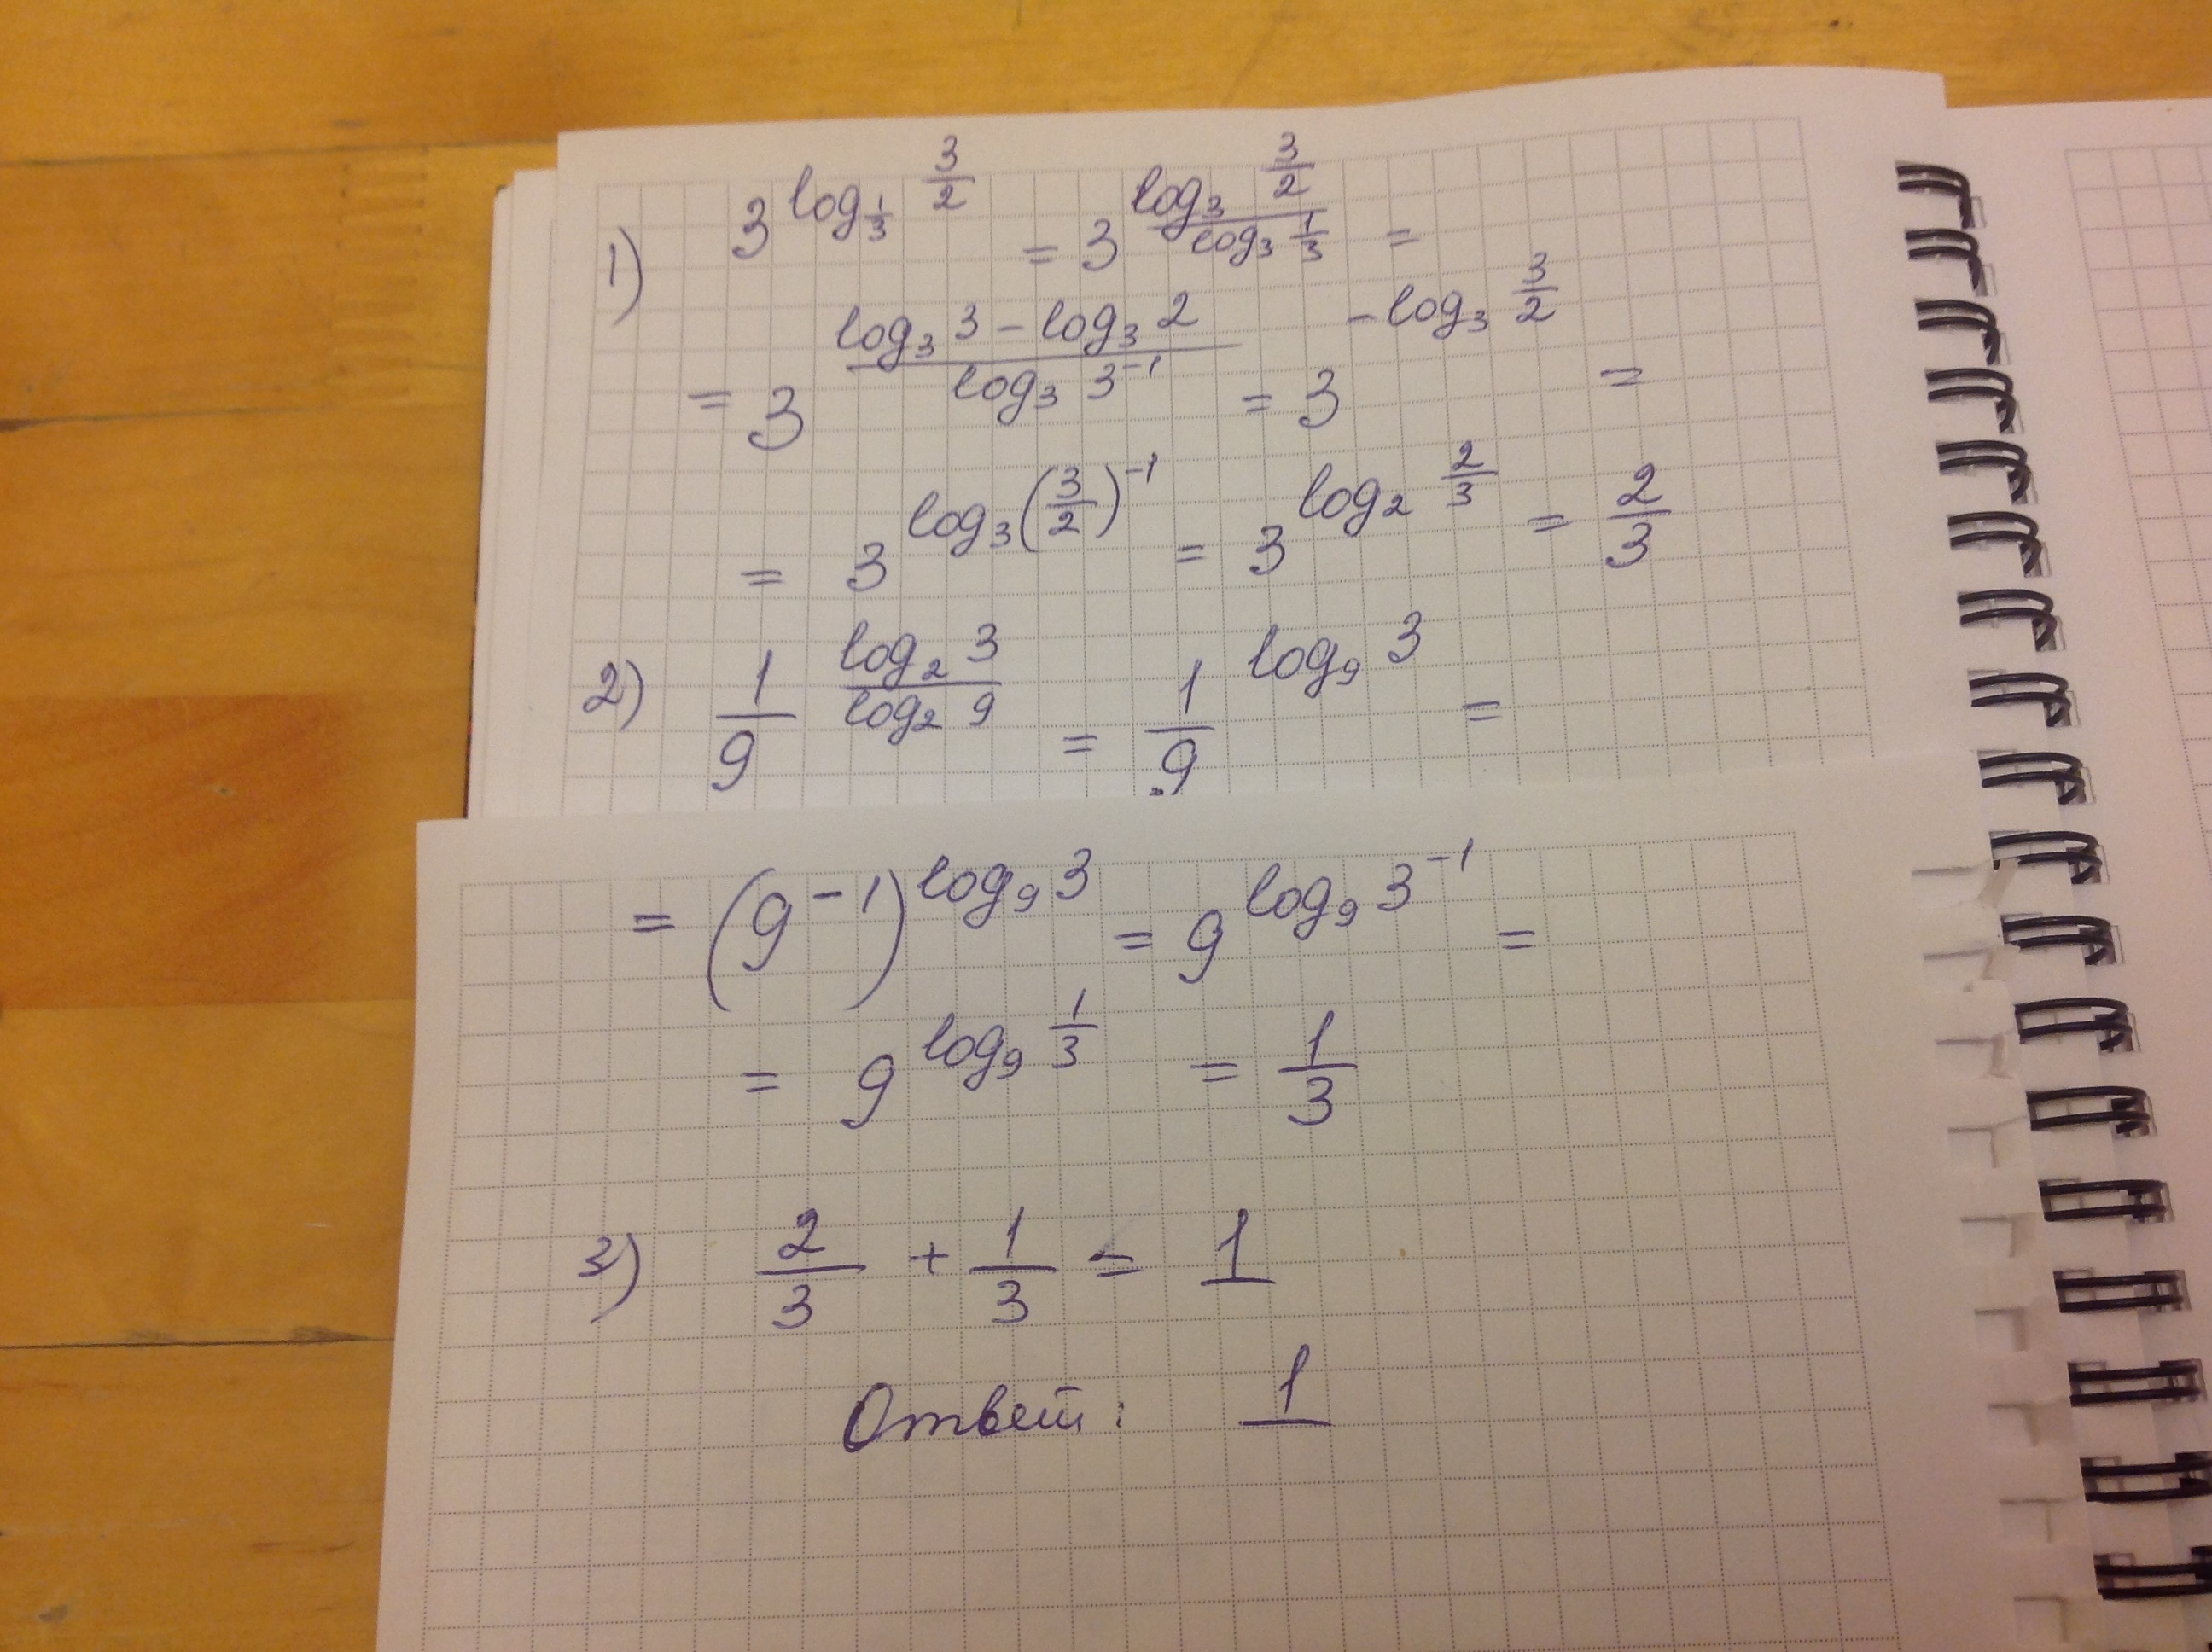 1) 3^{log_{\frac{1}{3}} \frac{3}{2}} = 3^{\frac{log_3 \frac{3}{2}}{log_3 \frac{1}{3}}} =
= 3^{\frac{log_3 3 - log_3 2}{log_3 3^{-1}}} = 3^{-log_3 \frac{3}{2}} =
= 3^{log_3 (\frac{3}{2})^{-1}} = 3^{log_2 \frac{2}{3}} = \frac{2}{3}
2) \frac{1}{9}^{\frac{log_2 3}{log_2 9}} = \frac{1}{9}^{log_9 3} =
= (9^{-1})^{log_9 3} = 9^{log_9 3^{-1}} =
= 9^{log_9 \frac{1}{3}} = \frac{1}{3}
3) \frac{2}{3} + \frac{1}{3} = 1
Ответ: 1